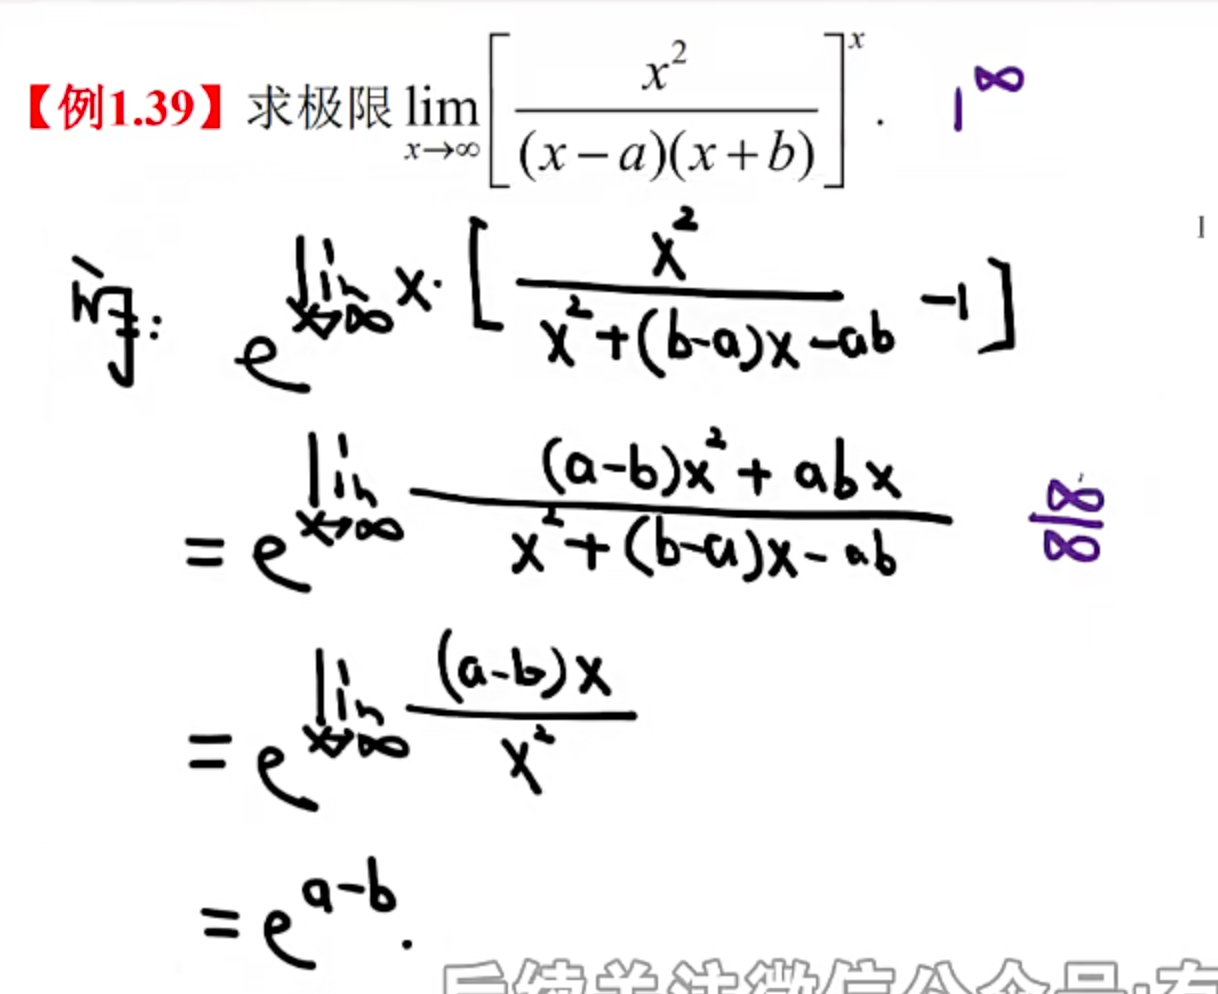 【例1.39】求极限 lim_{x→∞} [x² / ((x−a)(x+b))]^x . 1^∞
I
解: e^{lim_{x→∞} x·[x² / (x²+(b-a)x-ab) -1]}
= e^{lim_{x→∞} ((a-b)x²+abx) / (x²+(b-a)x-ab)} ∞/∞
= e^{lim_{x→∞} (a-b)x / x²}
= e^{a-b}.
后续关注微信公众号:有